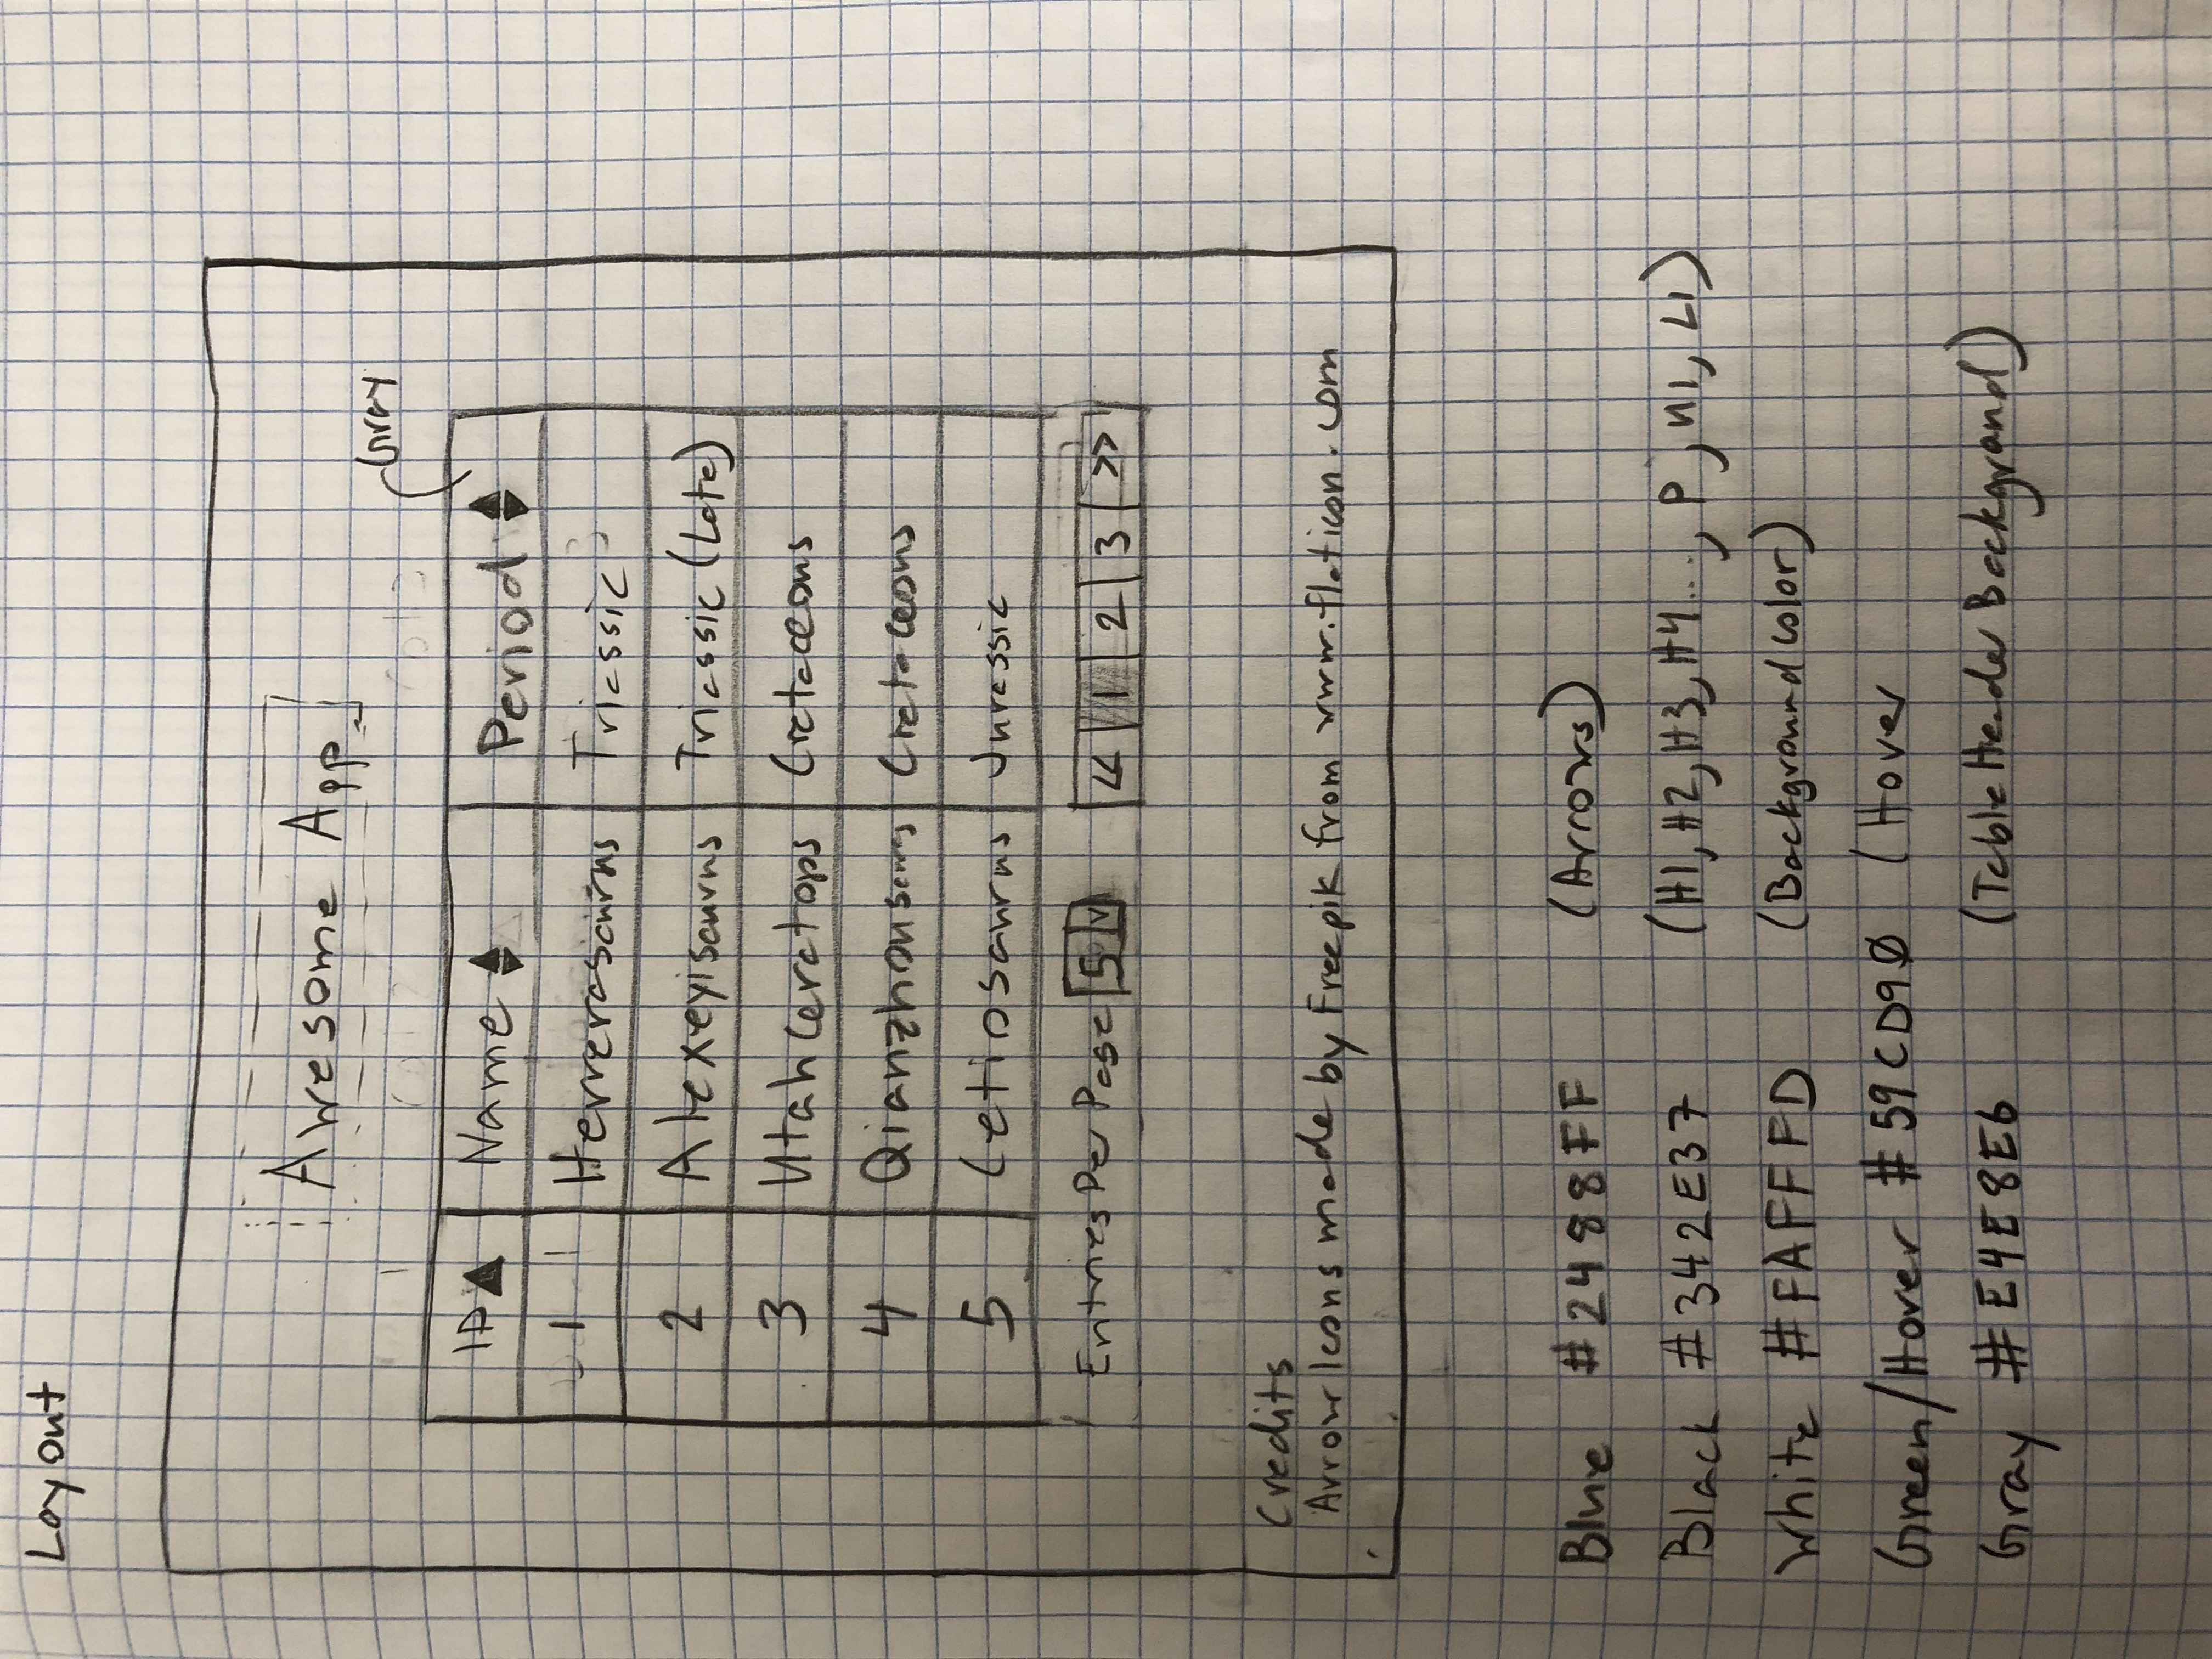 Layout
Awesome App
Gray
ID Name Period
1 Herrerasaurus Triassic
2 Alexeyisaurus Triassic (Late)
3 Utahceratops Cretaceous
4 Qianzhousaurus Cretaceous
5 Cetiosaurus Jurassic
Entries Per Page 5 v << 1 2 3 >>
Credits
Arrow Icons made by Freepik from www.flaticon.com
Blue #2488FF (Arrows)
Black #342E37 (H1, H2, H3, H4..., P, ul, LI)
White #FAFFFD (Background color)
Green/Hover #59CD90 (Hover
Gray #E4E8E6 (Table Header Background)